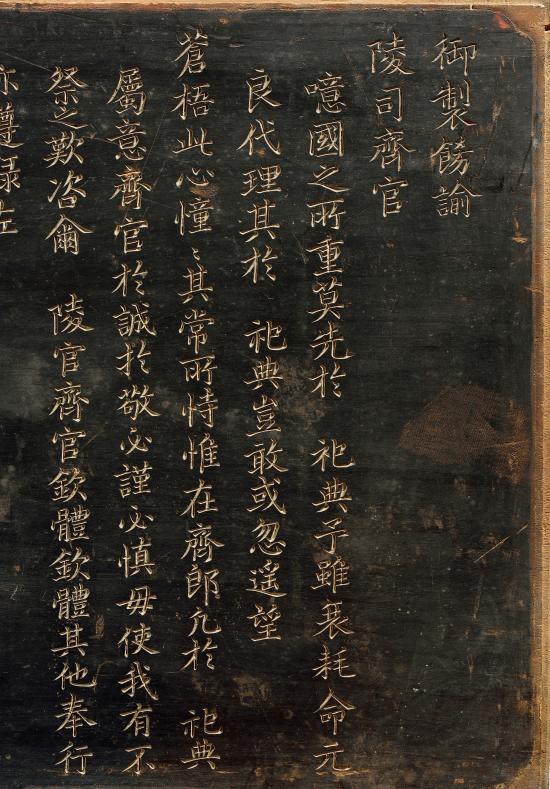 御製飭諭
陵司齊官
噫國之所重莫先於 祀典予雖衰耗命元
良代理其於 祀典豈敢或忽遥望
蒼梧此心憧〻其常所恃惟在齊郎凢於 祀典
屬意齊官於誠扵敬必謹必慎毋使我有不
祭之歎咨爾 陵官齊官欽體欽體其他奉行
亦遵